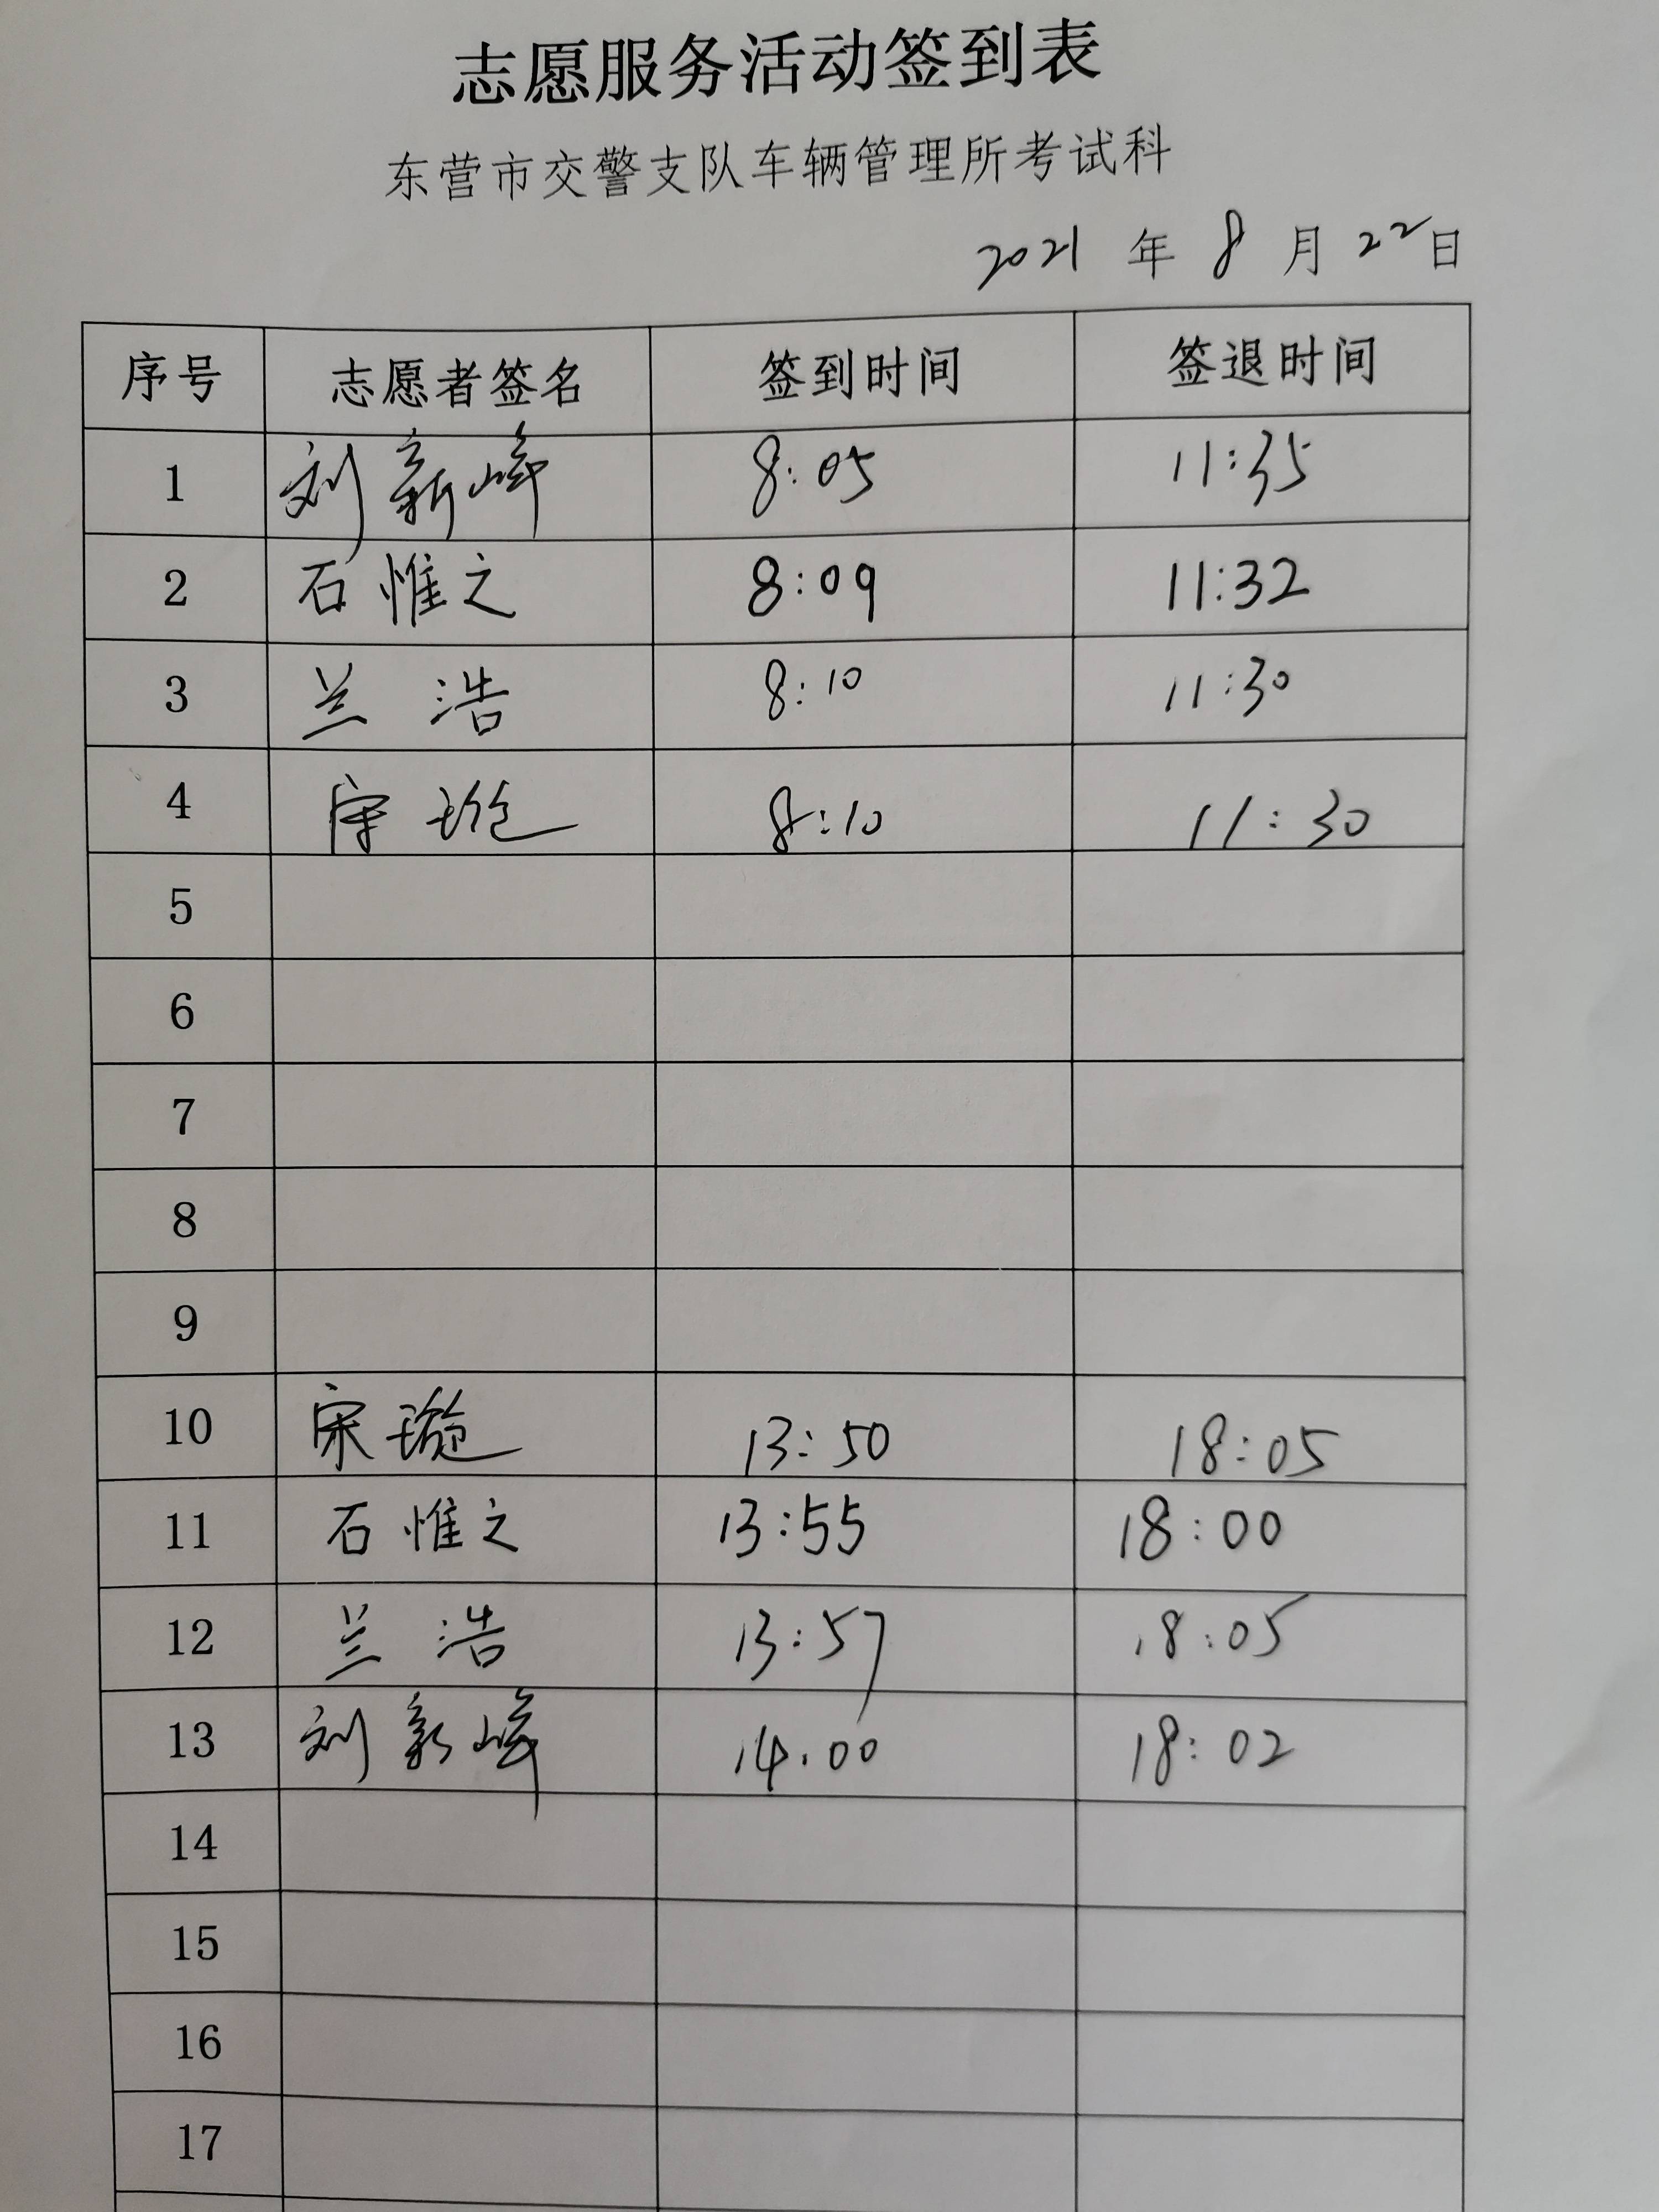 志愿服务活动签到表
东营市交警支队车辆管理所考试科
2021 年 8 月 22日
序号 志愿者签名 签到时间 签退时间
1 刘新峰 8:05 11:35
2 石惟之 8:09 11:32
3 兰浩 8:10 11:30
4 宋璇 8:10 11:30
5
6
7
8
9
10 宋璇 13:50 18:05
11 石惟之 13:55 18:00
12 兰浩 13:57 18:05
13 刘新峰 14.00 18:02
14
15
16
17